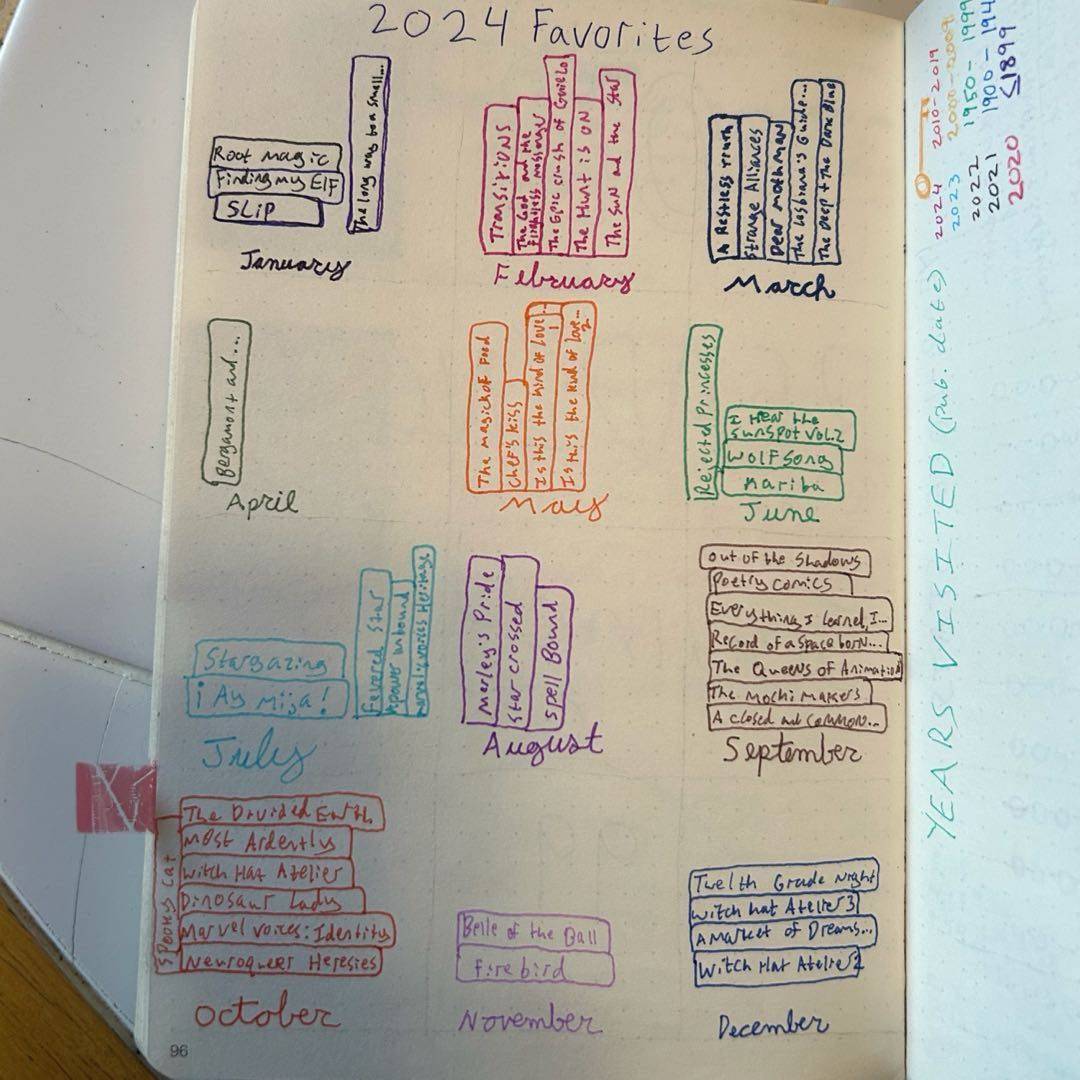 2024 Favorites
Root magic
Finding my Elf
SLiP
The long way to a small...
January
TransitiONS
The Cat and the
The Epic crush of Genie Lo
The Hunt is ON
The Sun and the Star
February
A Restless Truth
Strange Alliances
Dear Mothman
The Lesbiana's Guide...
The Deep + The Dark Blue
March
Bergamont and...
April
The magick of Food
chef's kiss
Is this the kind of Love...
1
Is this the kind of Love...
2
May
Rejected Princesses
I Hear the
sunspot vol.2
Wolfsong
Mariba
June
Stargazing
¡Ay Mija!
Fevered Star
Apower unbound
Marvel's voices Heritage
July
Marley's Pride
Star crossed
Spell Bound
August
out of the Shadows
Poetry comics
Everything I learned, I...
Record of a space born...
The Queens of Animation
The Mochi makers
A closed and common...
September
Spooky Cat
The Divided Earth
Most Ardently
Witch Hat Atelier
Dinosaur Lady
Marvel voices: Identity
Neuroqueer Heresies
October
Belle of the Ball
Firebird
November
Twelth Grade Night
witch hat Atelier 3
A Market of Dreams...
Witch Hat Atelier 2
December
96
M
YEARS VISITED (pub. date)
2024
2023
2022
2021
2020
2010-2019
2000-2009
1950-1999
1900-194
≤1899